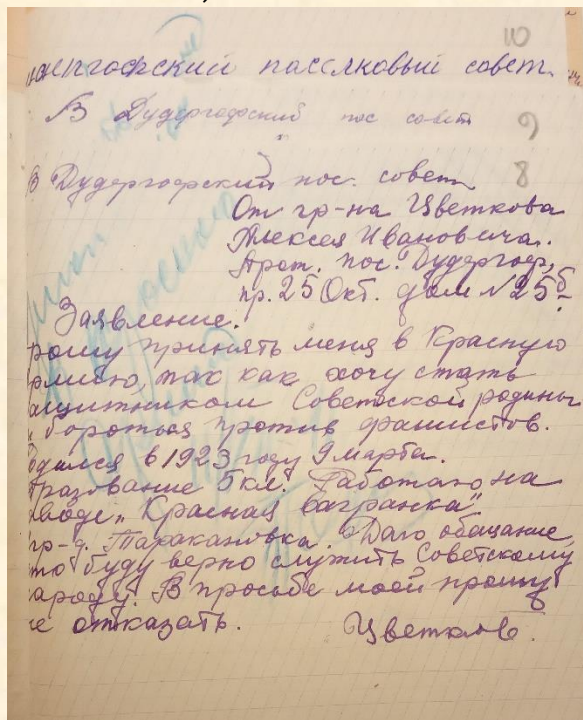 10
нгофский пасёлковый совет.
В Дудергофский пос совет 9
В Дудергофский пос. совет 8
От гр-на Цветкова
Алексея Ивановича.
Прож. пос. Дудергоф,
пр. 25 Окт. дом №25б.
Заявление.
рошу принять меня в Красную
рмию, так как хочу стать
ащитником Советской родины
и бороться против фашистов.
одился в 1923 году 9 марта.
бразование 5 кл. Работаю на
аводе „Красная вагранка"
гр-д. Таракановка. Даю обещание
то буду верно служить Советскому
ароду. В прозьбе моей прошу
не отказать. Цветков.